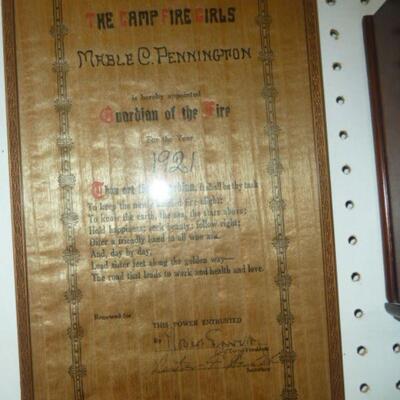 THE CAMP FIRE GIRLS
MABLE C. PENNINGTON
is hereby appointed
Guardian of the Fire
For the Year
1921
Thou art the Guardian, it shall be thy task
To keep the newly kindled fire alight;
To know the earth, the sea, the stars above;
Hold happiness; seek beauty; follow right;
Offer a friendly hand to all who ask
And, day by day,
Lead sister feet along the golden way—
The road that leads to work and health and love.
Renewed for
THIS POWER ENTRUSTED
By
President
Secretary